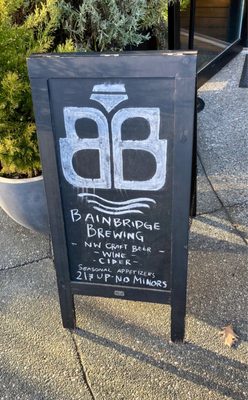 BB
BAINBRIDGE
BREWING
- NW CRAFT BEER -
- WINE -
- CIDER -
SEASONAL APPETIZERS
21+ UP NO MINORS